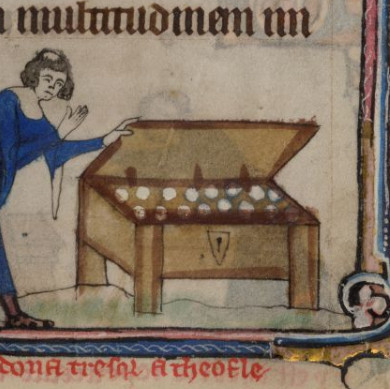 multitudinem
dona tresor a theofle